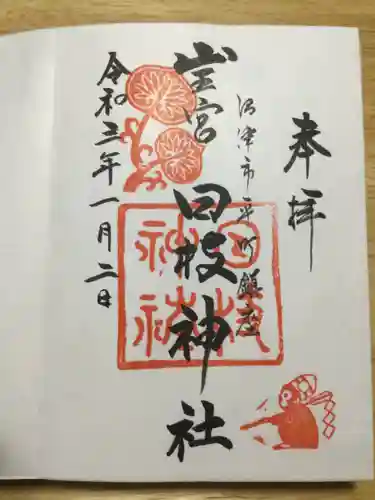 奉拝
沼津市平町鎮座
山王宮 日枝神社
令和三年一月二日
日枝神社